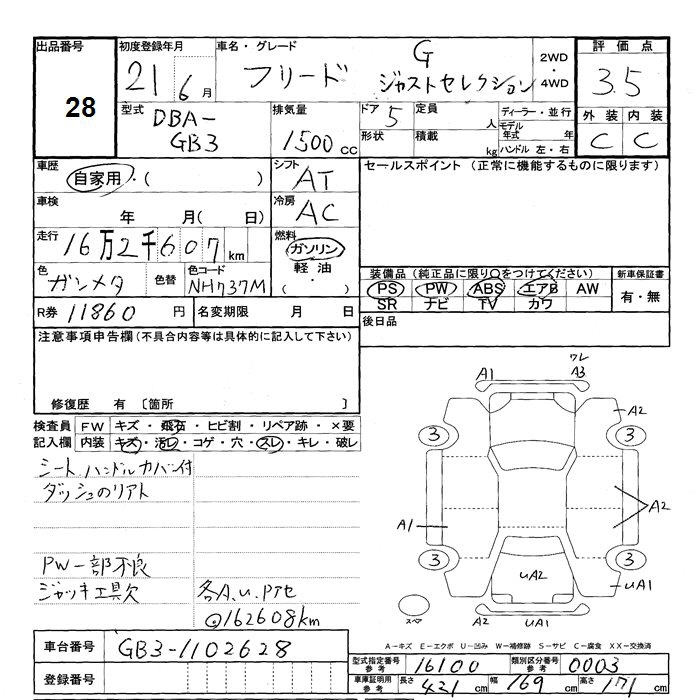 出品番号
28
初度登録年月
21 6月
車名・グレード
フリード G ジャストセレクション
2WD・4WD
評価点
3.5
外装 内装
C C
型式
DBA-GB3
排気量
1500 cc
ドア 5
形状
定員 人
積載 kg
ディーラー・並行
モデル年式 年
ハンドル 左・右
車歴
自家用・( )
シフト AT
セールスポイント (正常に機能するものに限ります)
車検 年 月( 日)
冷房 AC
走行 16万2千607km
燃料
ガソリン
軽油
・( )
色 ガンメタ 色替
色コード NH737M
装備品 (純正品に限り○をつけてください)
PS PW ABS エアB AW
SR ナビ TV カワ
新車保証書
有・無
R券 11860 円 名変期限 月 日
後日品
注意事項申告欄(不具合内容等は具体的に記入して下さい)
修復歴 有 〔箇所 〕
検査員記入欄
FW キズ・飛石・ヒビ割・リペア跡・×要
内装 キズ・汚レ・コゲ・穴・スレ・キレ・破レ
シート ハンドルカバー付
ダッシュのリアト
PW一部不良
ジャッキ工具欠
各A.u.Pアセ
@162608km
A1 ワレ A3
A2
3 3
A1 A2
3 3
uA2
uA1
スペア A2 uA1
A-キズ E-エクボ U-凹み W-補修跡 S-サビ C-腐食 XX-交換済
車台番号 GB3-1102628
登録番号
型式指定番号 参考 16100 類別区分番号 参考 0003
車庫証明用 参考 長さ 421cm 幅 169cm 高さ 171cm